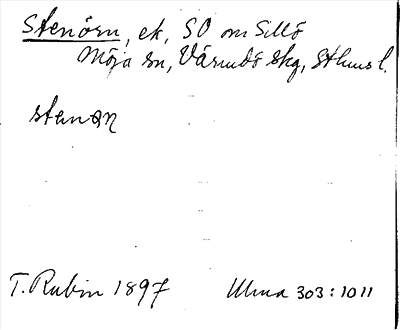 Stenörn, ek, SO om Sillö
Möja sn, Värmdö skg, Sthms l.
T. Rubin 1897 Ulma 303:1011